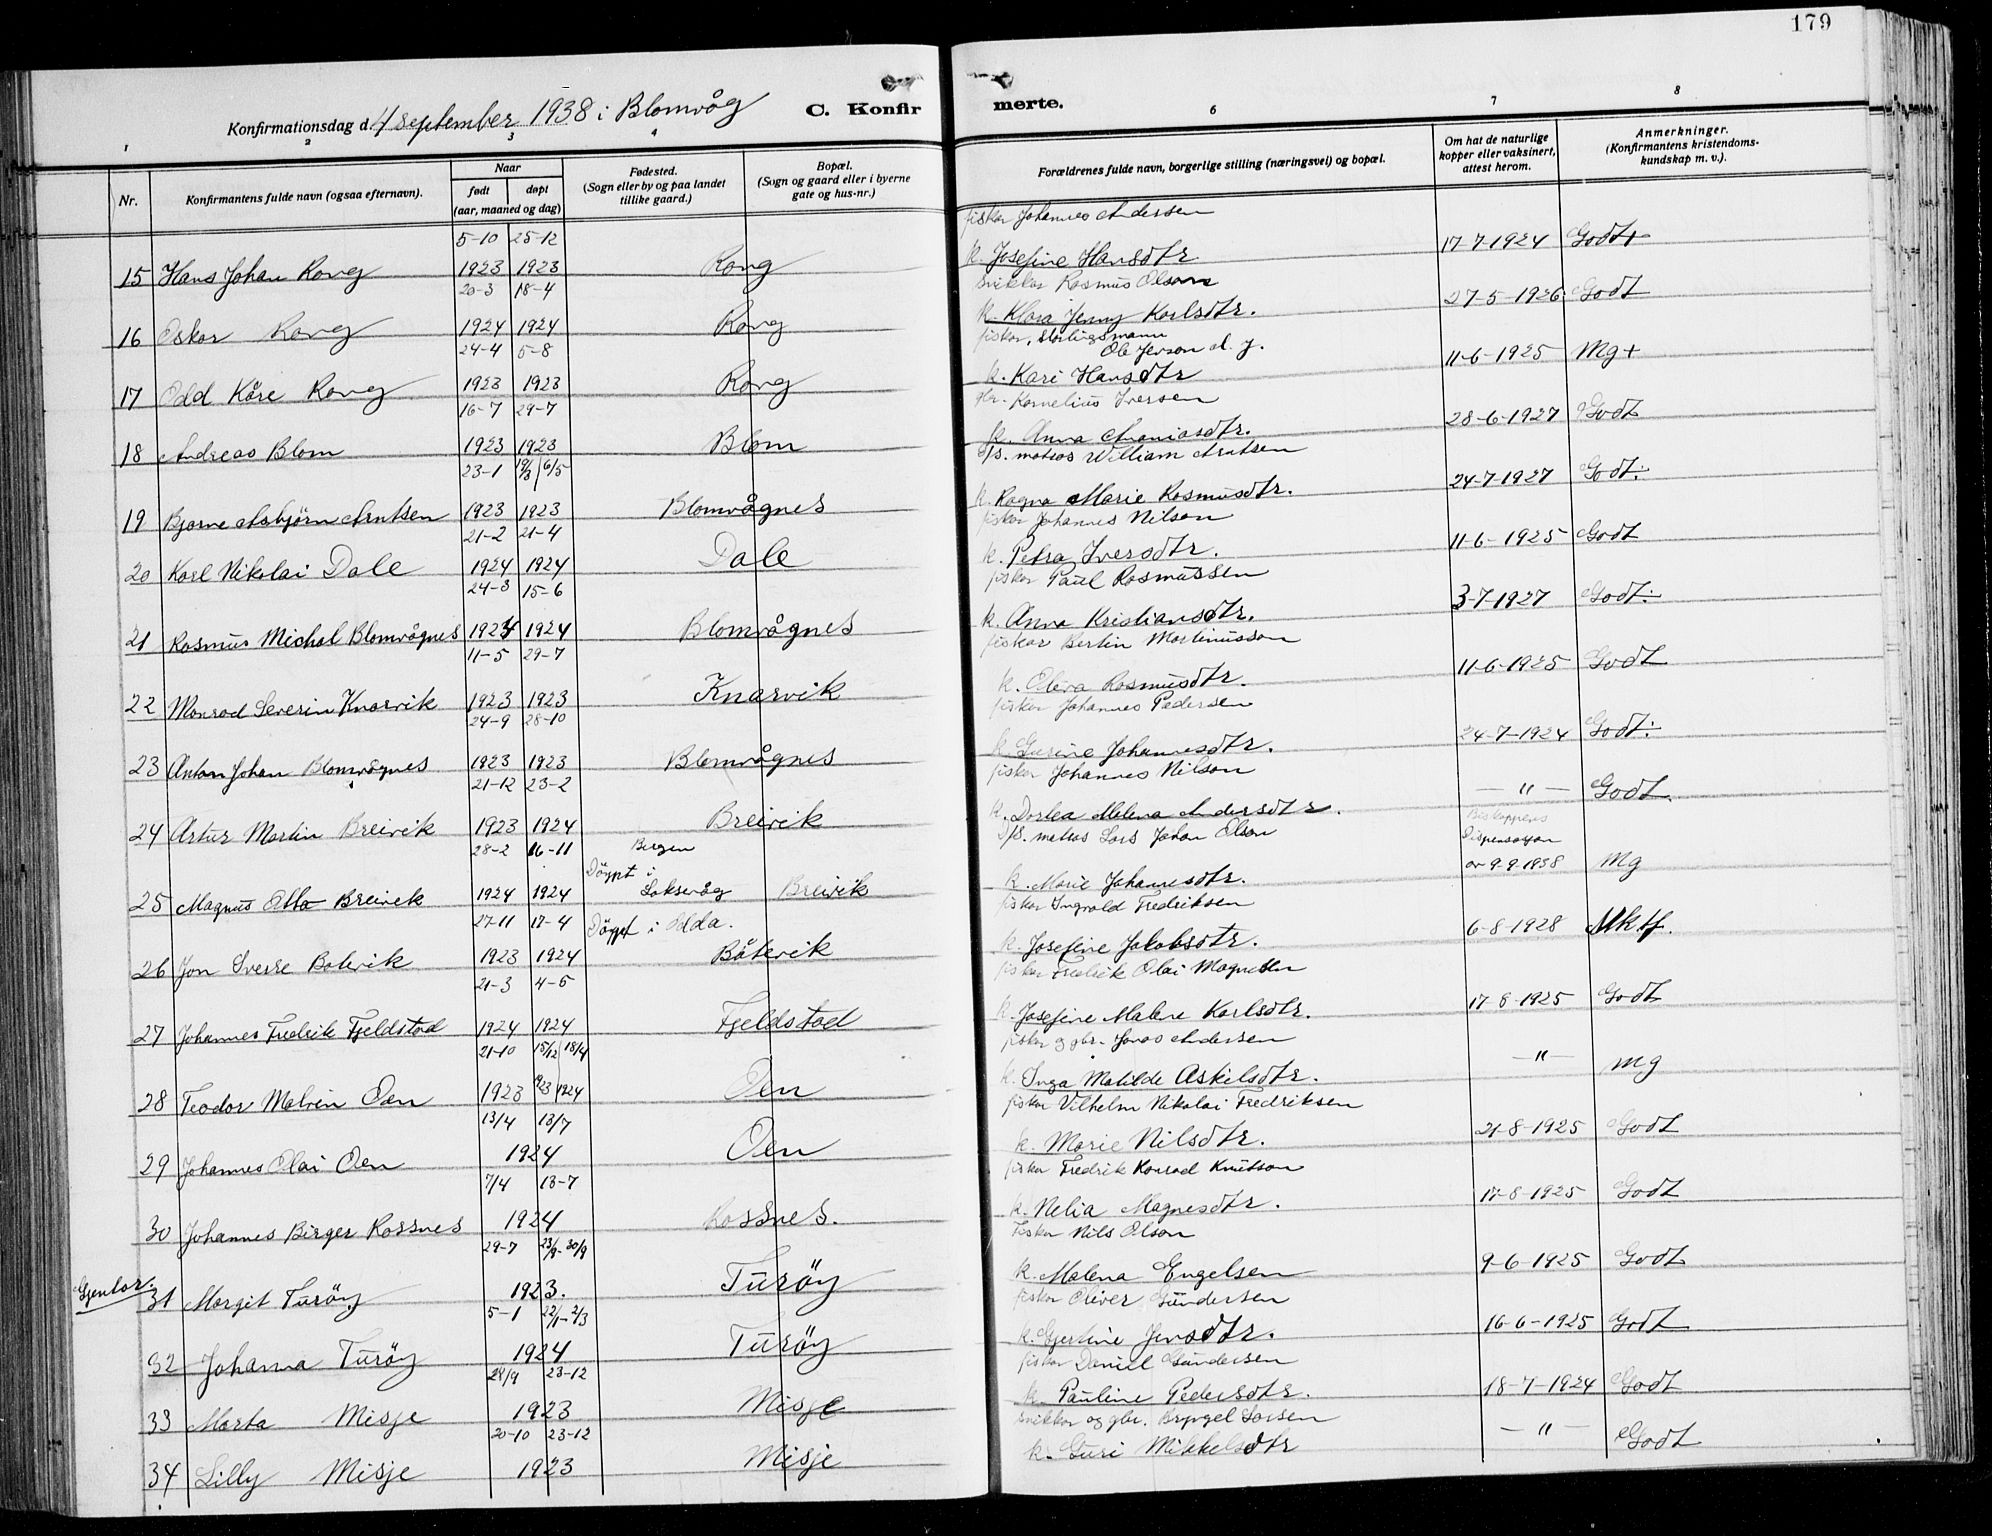 179
Konfirmationsdag d. 4 september 1938 i Blomvåg
C. Konfirmerte.
1 2 3 4 6 7 8
Nr.
Konfirmantens fulde navn (ogsaa efternavn).
Naar
født døpt
(aar, maaned og dag)
Fødested.
(Sogn eller by og paa landet
tillike gaard.)
Bopæl.
(Sogn og gaard eller i byerne
gate og hus-nr.)
Forældrenes fulde navn, borgerlige stilling (næringsvei) og bopæl.
Om hat de naturlige
kopper eller vaksinert,
attest herom.
Anmerkninger.
(Konfirmantens kristendoms-
kundskap m. v.).
5-10 25-12 fiskar Johannes Andersen
15 Hans Johan Rong 1923 1923 Rong k. Josefine Hansdtr 17-7-1924 Godt+
20-3 18-4 snikkar Rasmus Olson
16 Oskar Rong 1924 1924 Rong k. Klara Jenny Karlsdtr. 27-5-1926 Godt
24-4 5-8 fiskar, stortingsmann Ole Jenson d. y.
17 Odd Kåre Rong 1923 1923 Rong k. Kari Hansdtr 11-6-1925 Mg+
16-7 29-7 gbr. Kornelius Iversen
18 Andreas Blom 1923 1923 Blom k. Anna Ananiasdtr. 28-6-1927 Godt
23-1 19/3 6/5 d/s. matros William Arntsen
19 Bjarne Asbjörn Arntsen 1923 1923 Blomvågnes k. Ragna Marie Rasmusdtr. 24-7-1927 Godt:
21-2 21-4 fiskar Johannes Nilson
20 Karl Nikolai Dale 1924 1924 Dale k. Petra Iversdtr. 11-6-1925 Godt
24-3 15-6 fiskar Paul Rasmussen
21 Rasmus Michal Blomvågnes 1924 1924 Blomvågnes k. Anna Kristiansdtr. 3-7-1927 Godt:
11-5 29-7 fiskar Bertin Martinusson
22 Monrad Severin Knarvik 1923 1923 Knarvik k. Oliva Rasmusdtr. 11-6-1925 Godt
24-9 28-10 fiskar Johannes Pedersen
23 Anton Johan Blomvågnes 1923 1923 Blomvågnes k. Gurine Johannesdtr. 24-7-1924 Godt:
21-12 23-2 fiskar Johannes Nilson
24 Artur Martin Breivik 1923 1924 Breivik k. Dortea Malena Andersdtr — " — Godt.
28-2 16-11 Bergen d/s. matros Lars Johan Olson Biskoppens Dispensasjon
25 Magnus Otto Breivik 1924 1924 Döypt i Laksevåg Breivik k. Marie Johannesdtr. av 9-9-1938 Mg
27-11 17-4 Döypt i Odda. fiskar Ingvald Fredriksen
26 Jon Sverre Båtevik 1923 1924 Båtevik k. Josefine Jakobsdtr. 6-8-1928 Mktf.
21-3 4-5 fiskar Fredrik Olai Magnesen
27 Johannes Fredrik Fjeldstad 1924 1924 Fjeldstad k. Josefine Malene Karlsdtr. 17-8-1925 Godt
21-10 15/12 18/4 fiskar og gbr. Jonas Andersen
28 Teodor Malvin Oen 1923 1923 1924 Oen k. Inga Matilde Askelsdtr. — " — Mg
13/4 13/7 fiskar Vilhelm Nikolai Fredriksen
29 Johannes Olai Oen 1924 Oen k. Marie Nilsdtr. 21-8-1925 Godt
7/4 13-7 fiskar Fredrik Konrad Knutson
30 Johannes Birger Rossnes 1924 Rossnes. k. Nelia Magnesdtr. 17-8-1925 Godt
29-7 23/9-30/9 Fiskar Nils Olson
Gjentor.
31 Margit Turöy 1923. Turöy k. Malena Engelsen 9-6-1925 Godt
5-1 22/1-2/3 fiskar Oliver Gundersen
32 Johanna Turöy 1924 Turöy k. Gjertine Jensdtr. 16-6-1925 Godt
28/9 23-12 fiskar Daniel Gundersen
33 Marta Misje 1923 Misje k. Pauline Pedersdtr. 18-7-1924 Godt
20-10 23-12 snikkar og gbr. Bryngel Larsen
34 Lilly Misje 1923 Misje k. Guri Mikkelsdtr — " — Godt